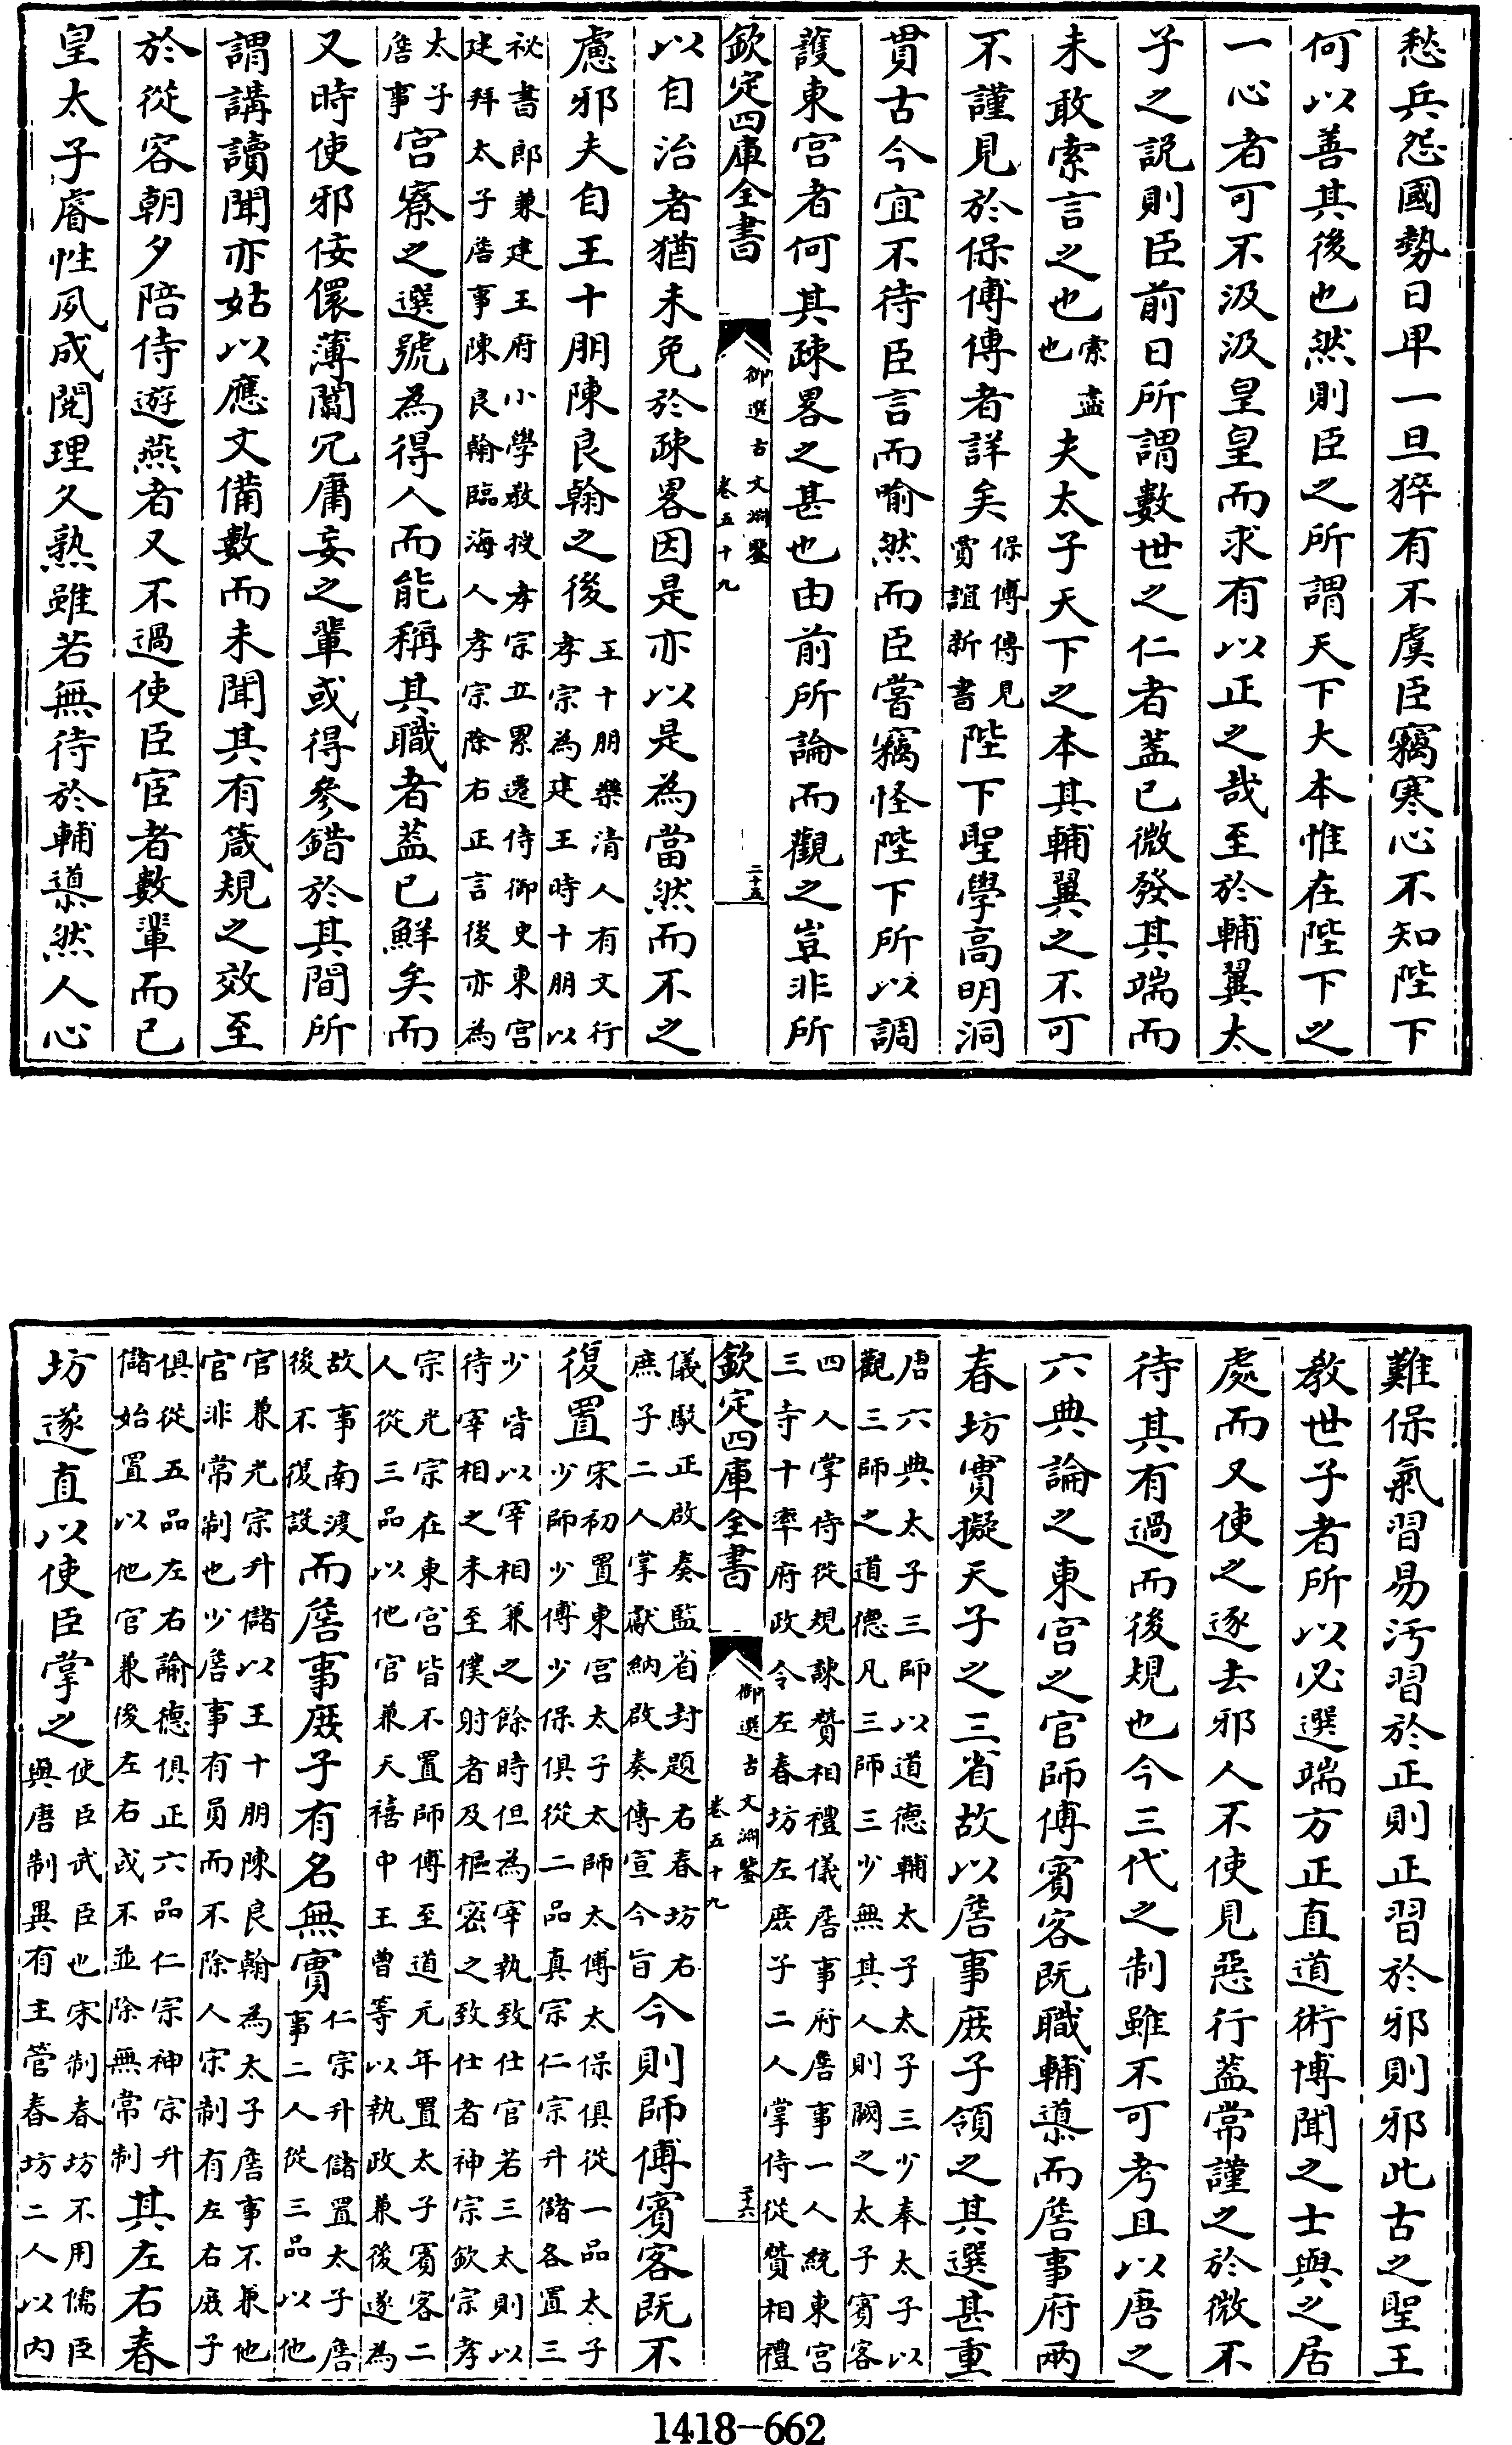 愁兵怨國勢日卑一旦猝有不虞臣竊寒心不知陛下
何以善其後也然則臣之所謂天下大本惟在陛下之
一心者可不汲汲皇皇而求有以正之哉至於輔翼太
子之說則臣前日所謂數世之仁者蓋已微發其端而
未敢索言之也索盡也夫太子天下之本其輔翼之不可
不謹見於保傅傳者詳矣保傅傳見賈誼新書陛下聖學高明洞
貫古今宜不待臣言而喻然而臣嘗竊怪陛下所以調
護東宮者何其疎畧之甚也由前所論而觀之豈非所
欽定四庫全書 御選古文淵鑒 卷五十九 二十五
以自治者猶未免於疎畧因是亦以是為當然而不之
慮邪夫自王十朋陳良翰之後王十朋樂清人有文行孝宗為建王時十朋以
祕書郎兼建王府小學教授孝宗立累遷侍御史東宮建拜太子詹事陳良翰臨海人孝宗除右正言後亦為
太子詹事宮寮之選號為得人而能稱其職者蓋已鮮矣而
又時使邪佞儇薄闒冗庸妄之輩或得參錯於其間所
謂講讀聞亦姑以應文備數而未聞其有箴規之效至
於從容朝夕陪侍遊燕者又不過使臣宦者數輩而已
皇太子睿性夙成閱理久熟雖若無待於輔導然人心
難保氣習易汚習於正則正習於邪則邪此古之聖王
教世子者所以必選端方正直道術博聞之士與之居
處而又使之逐去邪人不使見惡行蓋常謹之於微不
待其有過而後規也今三代之制雖不可考且以唐之
六典論之東宮之官師傅賓客既職輔導而詹事府兩
春坊實擬天子之三省故以詹事庶子領之其選甚重
唐六典太子三師以道德輔太子太子三少奉太子以觀三師之道德凡三師三少無其人則闕之太子賓客
四人掌侍從規諫贊相禮儀詹事府詹事一人統東宮三寺十率府政令左春坊左庶子二人掌侍從贊相禮
欽定四庫全書 御選古文淵鑒 卷五十九 二十六
儀駮正啟奏監省封題右春坊右庶子二人掌獻納啟奏傳宣令旨今則師傅賓客既不
復置宋初置東宮太子太師太傅太保俱從一品太子少師少傅少保俱從二品真宗仁宗升儲各置三
少皆以宰相兼之餘時但為宰執致仕官若三太則以待宰相之未至僕射者及樞密之致仕者神宗欽宗孝
宗光宗在東宮皆不置師傅至道元年置太子賓客二人從三品以他官兼天禧中王曾等以執政兼後遂為
故事南渡後不復設而詹事庶子有名無實仁宗升儲置太子詹事二人從三品以他
官兼光宗升儲以王十朋陳良翰為太子詹事不兼他官非常制也少詹事有員而不除人宗制有左右庶子
俱從五品左右諭德俱正六品仁宗神宗升儲始置以他官兼後左右或不並除無常制其左右春
坊遂直以使臣掌之使臣武臣也宋制春坊不用儒臣與唐制異有主管春坊二人以內
1418-662